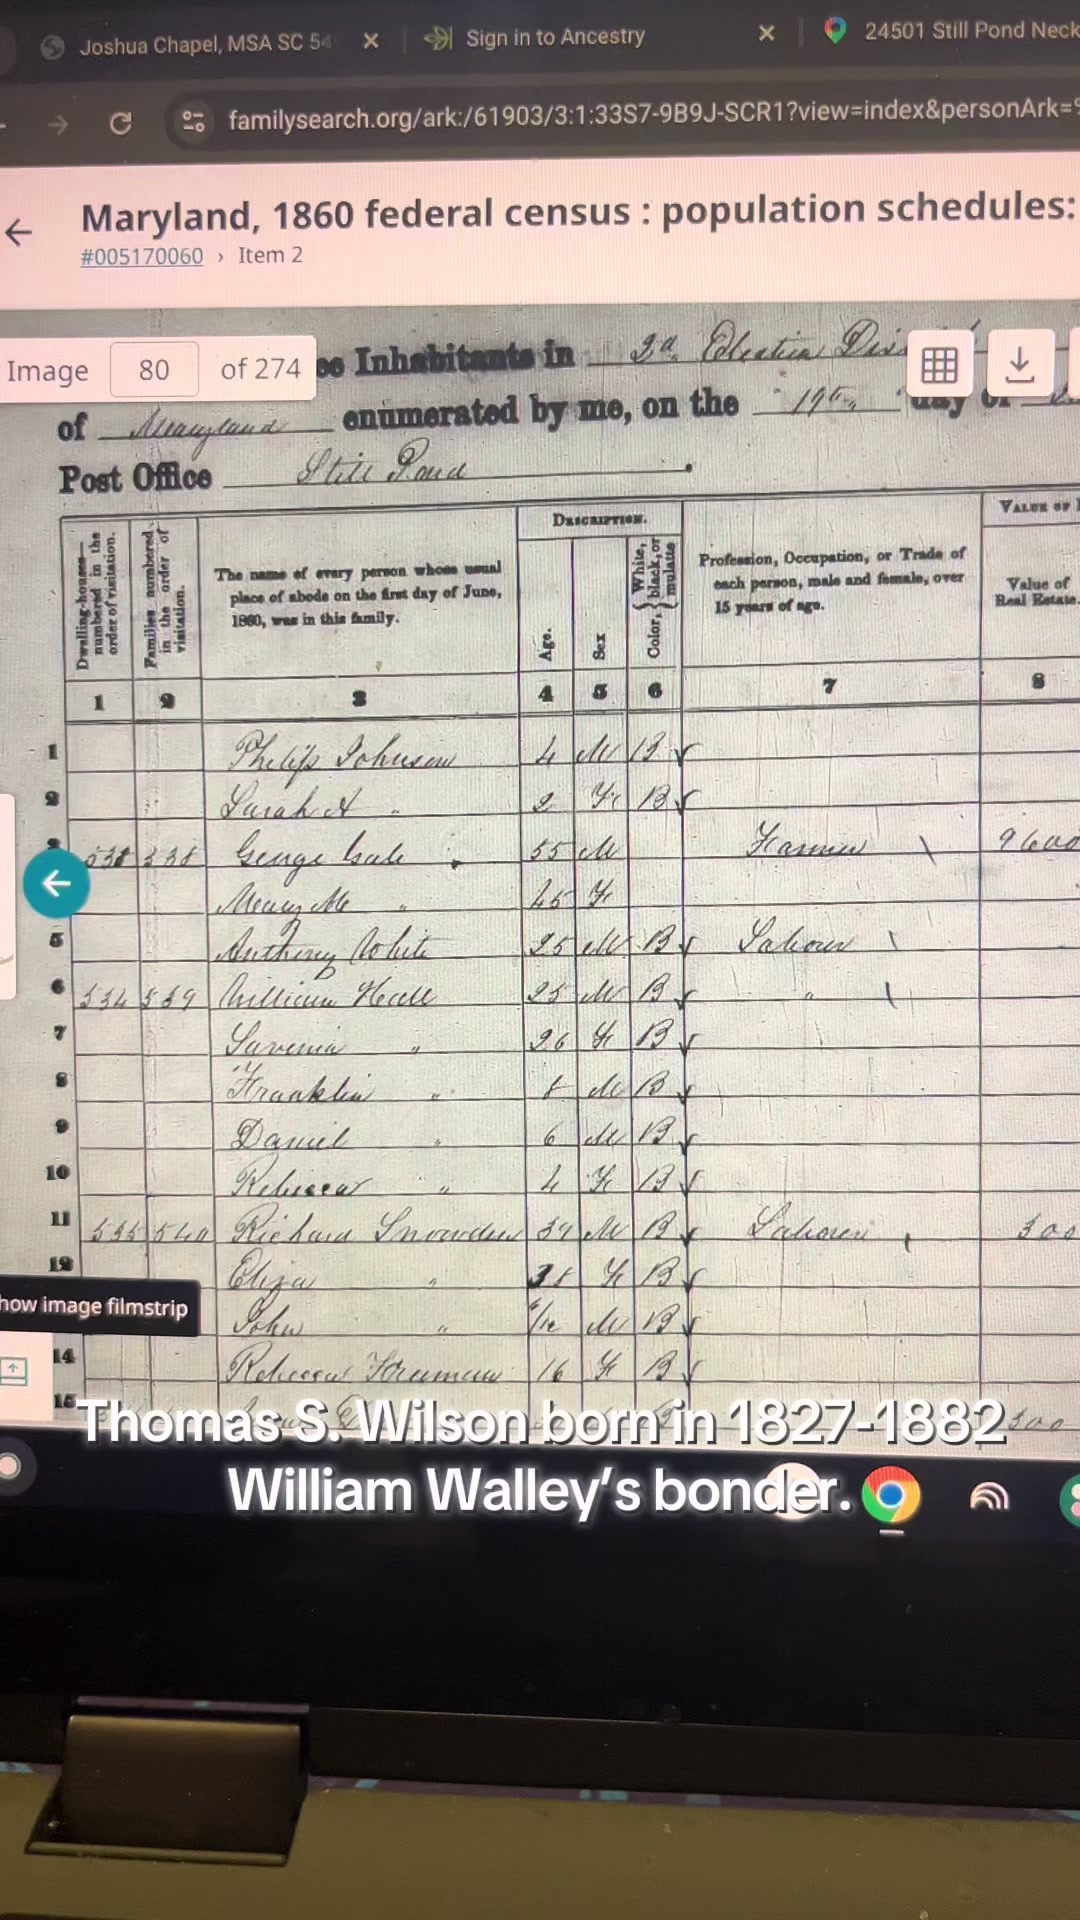 Joshua Chapel, MSA SC 54
Sign in to Ancestry
24501 Still Pond Neck
familysearch.org/ark:/61903/3:1:33S7-9B9J-SCR1?view=index&personArk=
Maryland, 1860 federal census : population schedules:
#005170060 › Item 2
Image 80 of 274
Inhabitants in 2d Election
of Maryland enumerated by me, on the 19th day of
Post Office Still Pond
Dwelling-houses— numbered in the order of visitation.
Families numbered in the order of visitation.
The name of every person whose usual place of abode on the first day of June, 1860, was in this family.
DESCRIPTION.
Age.
Sex
Color, { White, black, or mulatto
Profession, Occupation, or Trade of each person, male and female, over 15 years of age.
VALUE OF
Value of Real Estate.
1 2 3 4 5 6 7 8
1 Philip Johnson 4 M B
2 Sarah A " 2 F B
538 George Gale 55 M Farmer 9600
Mary " 45 F
5 Anthony White 25 M B Labour
6 534 539 William Hall 25 M B "
7 " 26 F B
8 Franklin " 8 M B
9 Daniel " 6 M B
10 Rebecca " 4 F B
11 535 540 Richard Snowden M B Labourer 300
12 Eliza " F B
John " M B
14 Rebecca Foreman 16 F B
15 300
how image filmstrip
Thomas S. Wilson born in 1827-1882
William Walley's bonder.